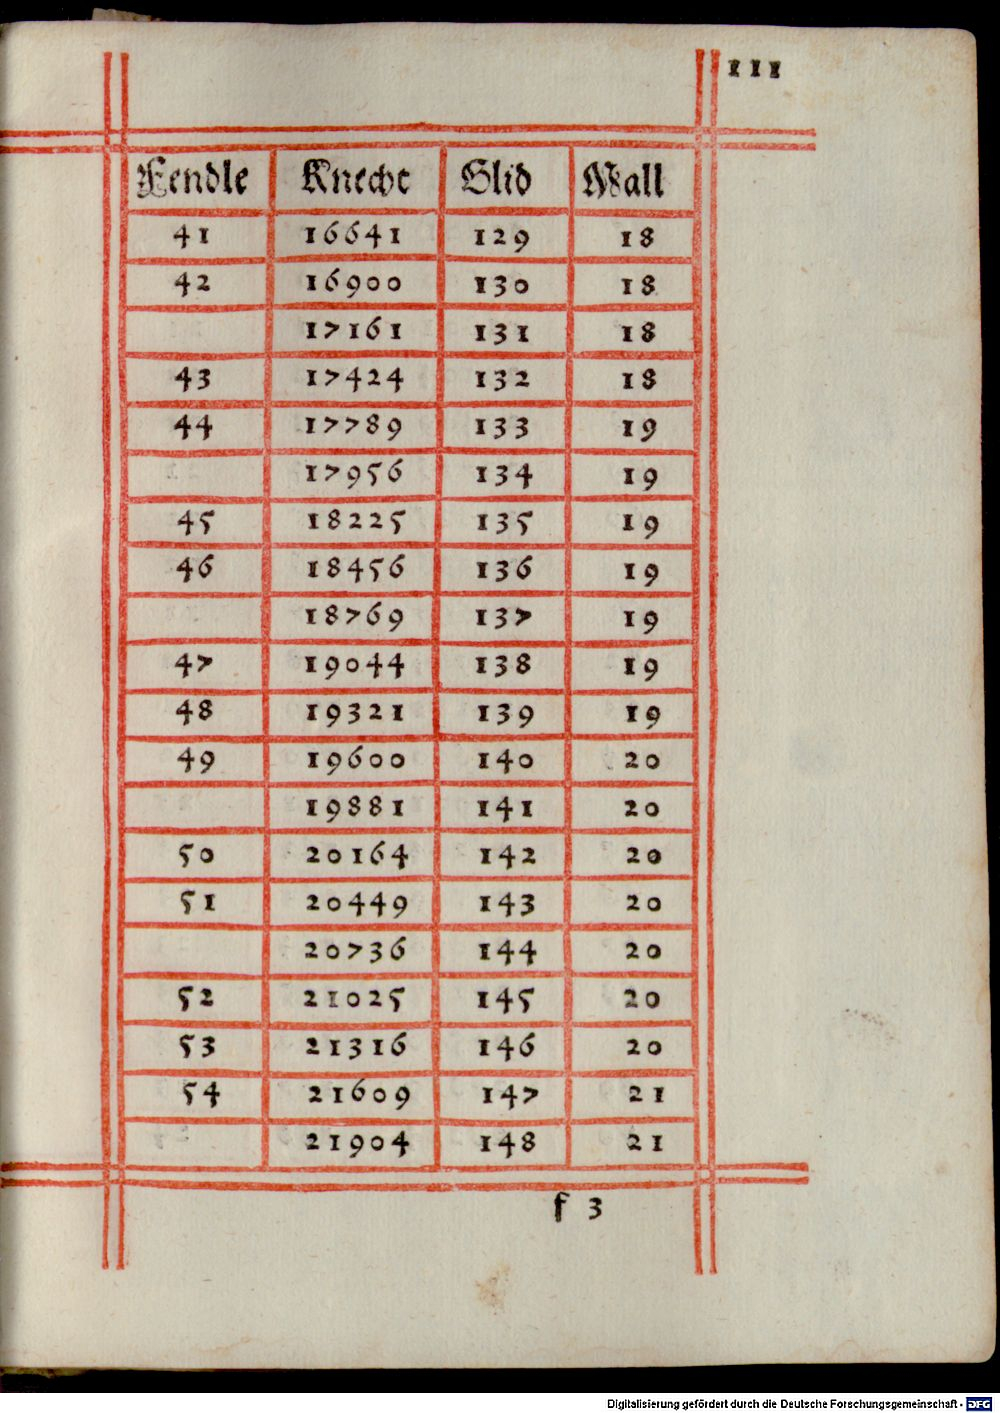 111
Fendle Knecht Glid Wall
41 16641 129 18
42 16900 130 18
17161 131 18
43 17424 132 18
44 17789 133 19
17956 134 19
45 18225 135 19
46 18456 136 19
18769 137 19
47 19044 138 19
48 19321 139 19
49 19600 140 20
19881 141 20
50 20164 142 20
51 20449 143 20
20736 144 20
52 21025 145 20
53 21316 146 20
54 21609 147 21
21904 148 21
f 3
Digitalisierung gefördert durch die Deutsche Forschungsgemeinschaft - DFG